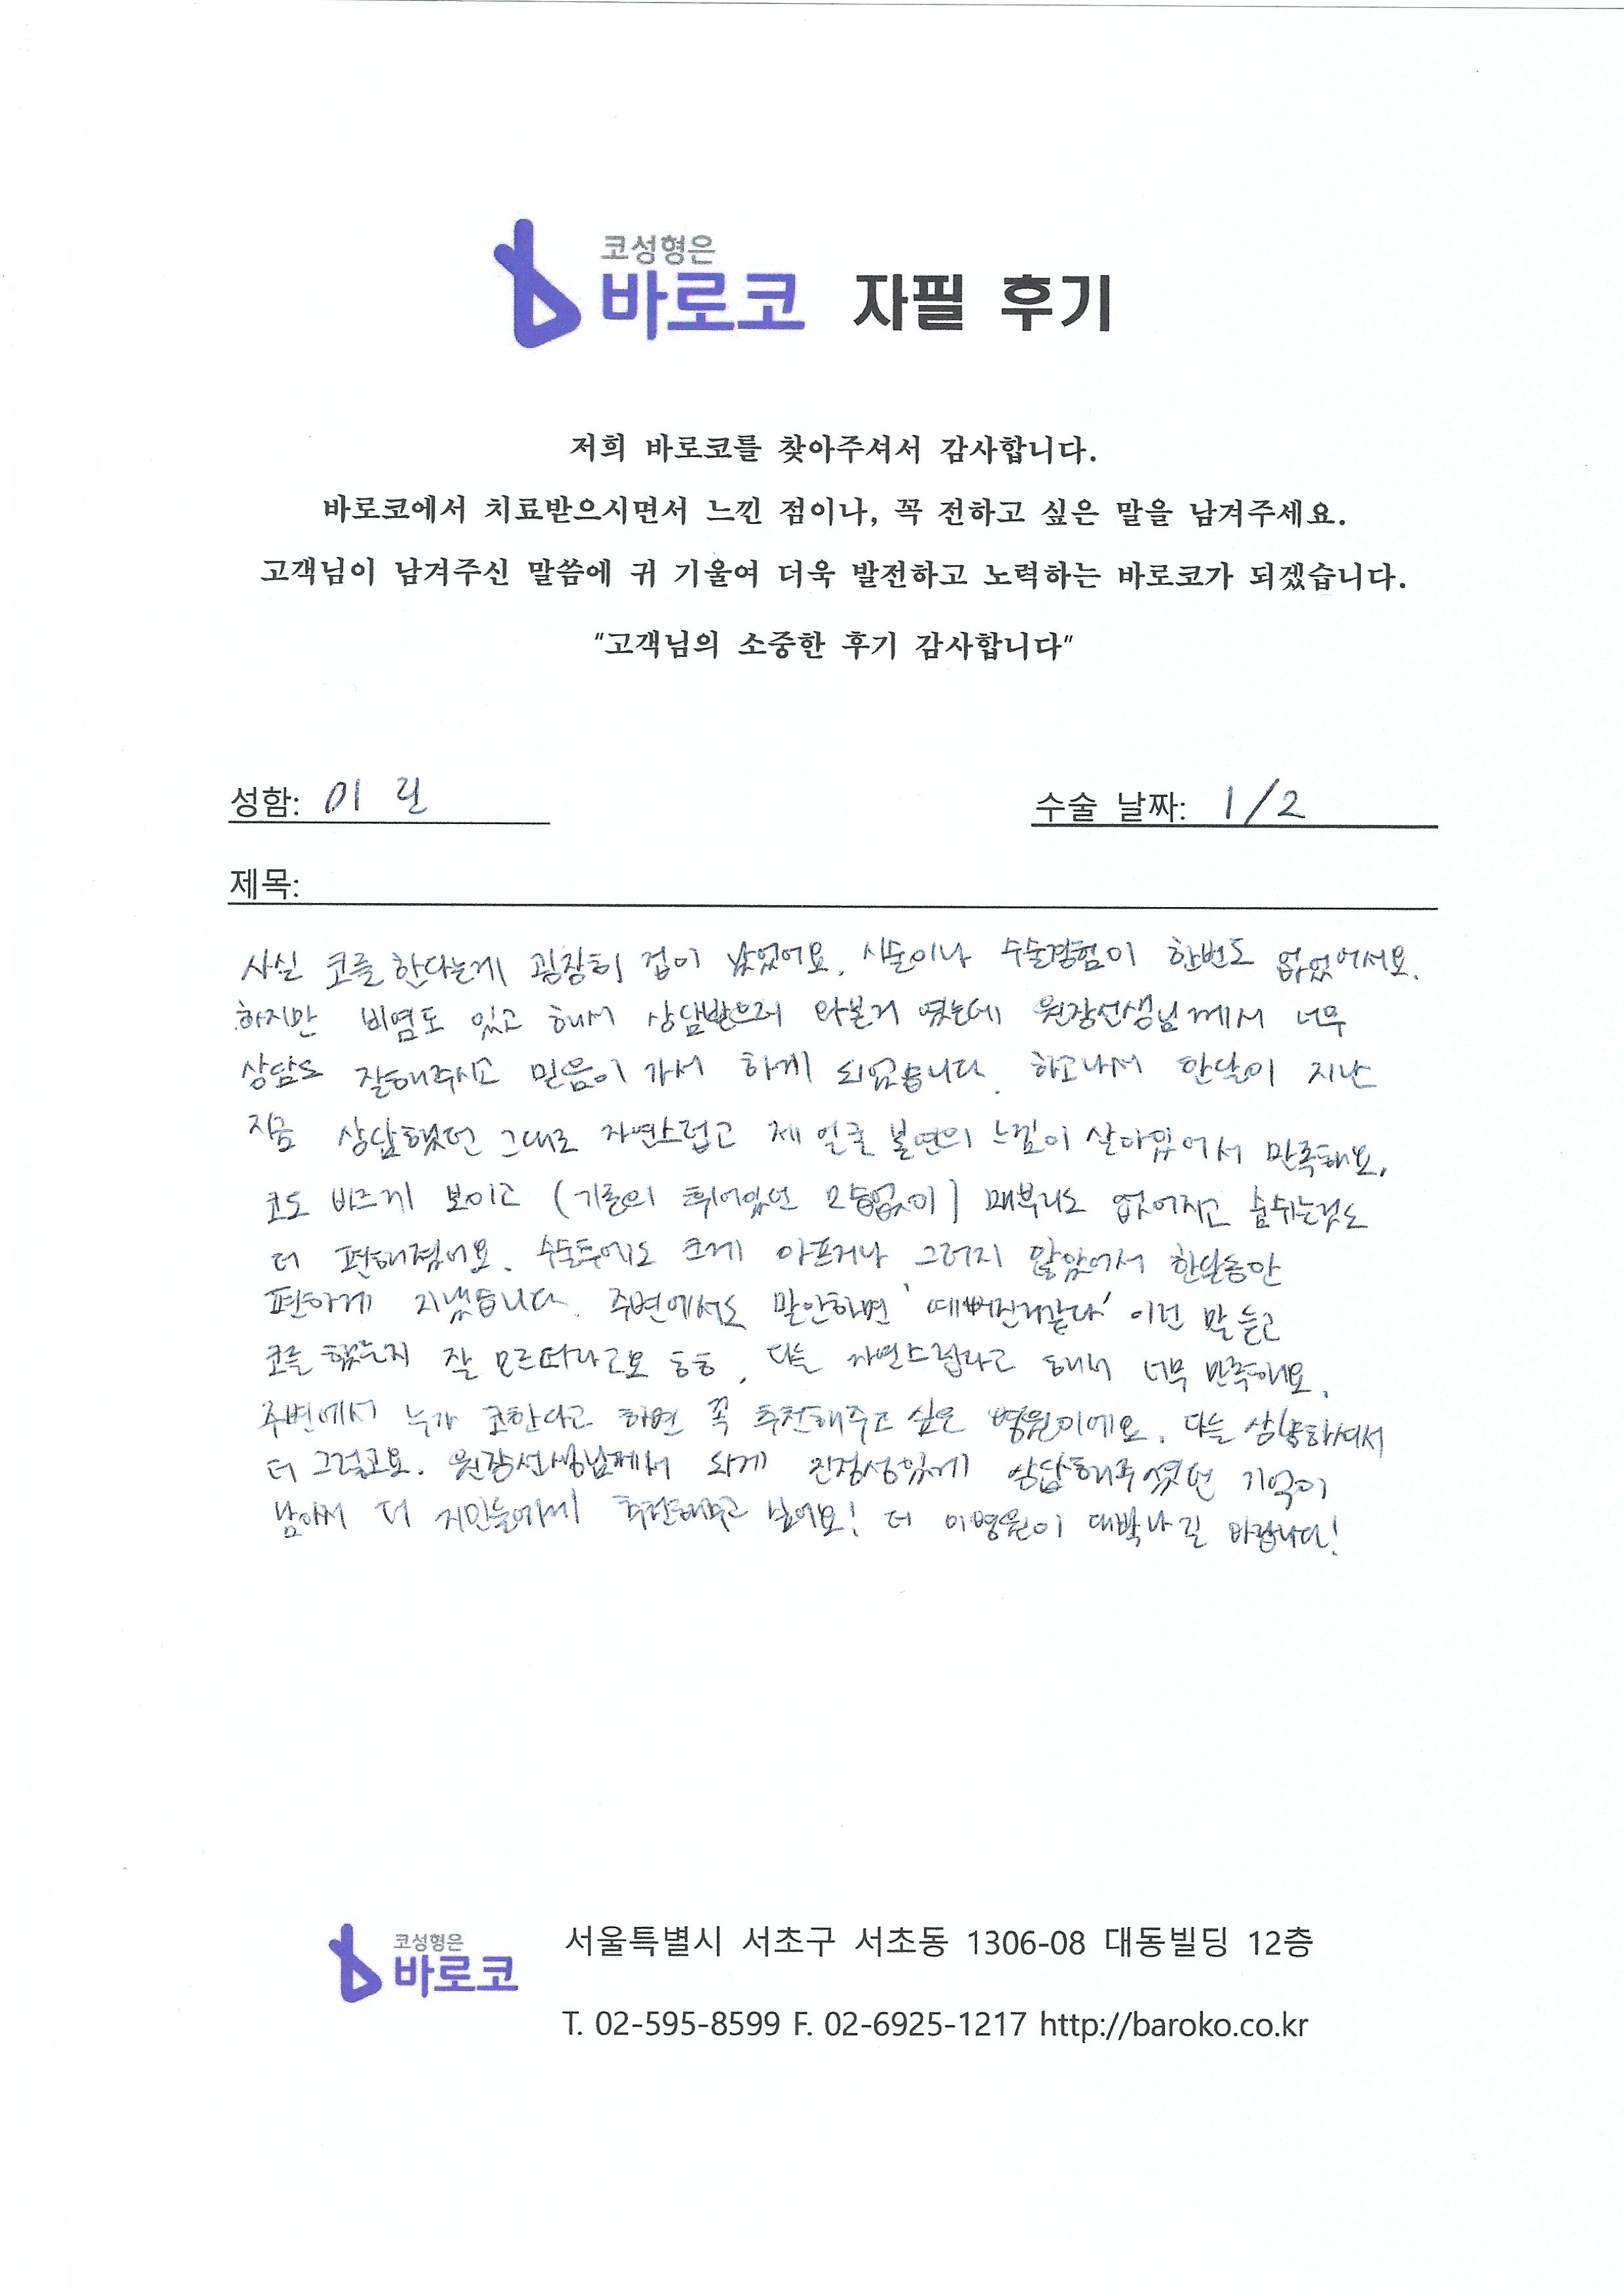 코성형은
바로코 자필 후기
저희 바로코를 찾아주셔서 감사합니다.
바로코에서 치료받으시면서 느낀 점이나, 꼭 전하고 싶은 말을 남겨주세요.
고객님이 남겨주신 말씀에 귀 기울여 더욱 발전하고 노력하는 바로코가 되겠습니다.
"고객님의 소중한 후기 감사합니다"
성함: 이 린 수술 날짜: 1/2
제목:
사실 코를 한다는게 굉장히 겁이 났었어요. 시술이나 수술경험이 한번도 없었어서요.
하지만 비염도 있고 해서 상담받으러 와본거 였는데 원장선생님께서 너무
상담도 잘해주시고 믿음이 가서 하게 되었습니다. 하고나서 한달이 지난
지금 상담했던 그대로 자연스럽고 제 얼굴 본연의 느낌이 살아있어서 만족해요.
코도 바르게 보이고 (기존의 휘어있던 모습없이) 매부리도 없어지고 숨쉬는것도
더 편해졌어요. 수술후에도 크게 아프거나 그러지 않았어서 한달동안
편하게 지냈습니다. 주변에서도 말안하면 '예뻐진거같다' 이런 말 듣고
코를 했는지 잘 모르더라고요 ㅎㅎ, 다들 자연스럽다고 해서 너무 만족해요.
주변에서 누가 코한다고 하면 꼭 추천해주고 싶은 병원이에요. 다들 상냥하셔서
더 그렇고요. 원장선생님께서 되게 진정성있게 상담해주셨던 기억이
남아서 더 지인들에게 추천해주고 싶어요! 더 이병원이 대박나길 바랍니다!
코성형은
바로코
서울특별시 서초구 서초동 1306-08 대동빌딩 12층
T. 02-595-8599 F. 02-6925-1217 http://baroko.co.kr